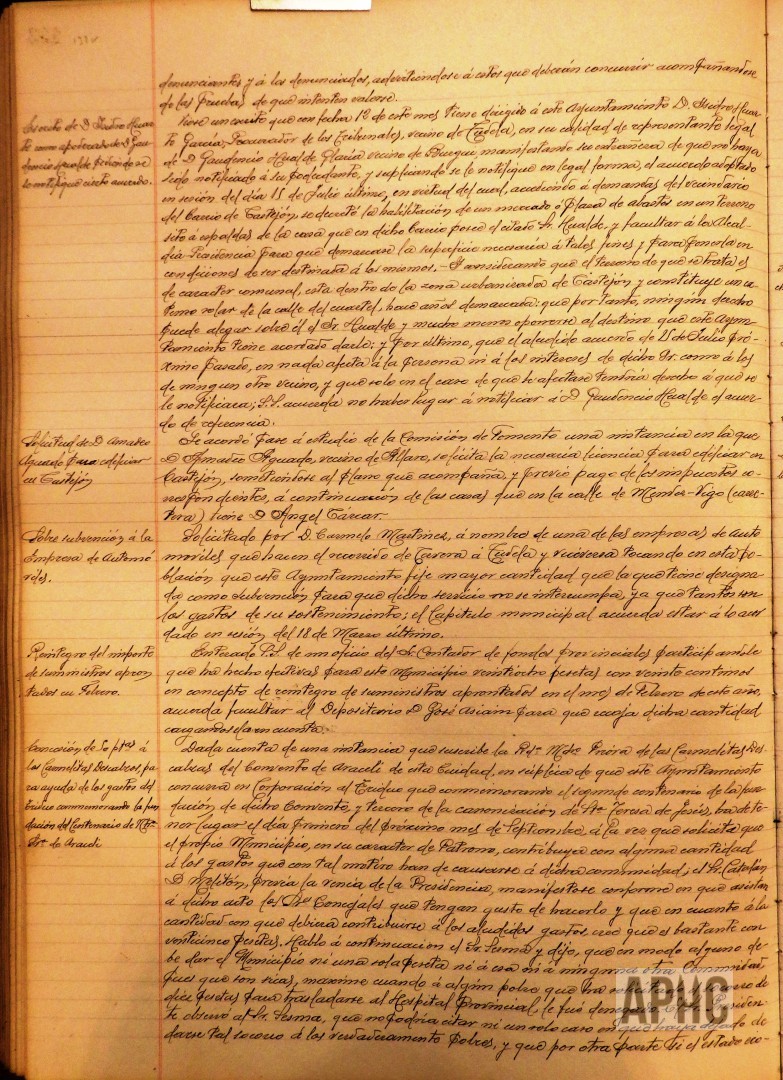 denunciantes y á los denunciados, advirtiéndose á estos que deberán concurrir acompañándose
de las pruebas de que intenten valerse.
Escrito de D. Isidro Huar
te como apoderado de D. Gau
dencio Hualde pidiendo se
le notifique cierto acuerdo.
Léese un escrito que con fecha 1º de este mes tiene dirigido á este Ayuntamiento D. Isidro Huar
te García, Procurador de los Tribunales, vecino de Tudela, en su calidad de representante legal
de D. Gaudencio Hualde vecino de Burgui, manifestando su extrañeza de que no haya
sido notificado á su poderdante, y suplicando se le notifique en legal forma, el acuerdo adoptado
en sesión del día 15 de Julio último, en virtud del cual, accediendo á demandas del vecindario
del barrio de Castejón, se decretó la habilitación de un mercado ó plaza de abastos en un terreno
sito á espaldas de la casa que en dicho barrio posee el citado Sr. Hualde, y facultar á la Alcal-
día Presidencia para que demarcase la superficie necesaria á tales fines y para ponerla en
condiciones de ser destinada á los mismos. - Considerando que el terreno de que se trata es
de caracter comunal, está dentro de la zona urbanizada de Castejón y constituye un ex
tremo solar de la calle del cuartel, hace años demarcada: que por tanto, ningún derecho
puede alegar sobre él el Sr. Hualde y mucho menos oponerse al destino que este Ayun-
tamiento tiene acordado darle; y por último, que el aludido acuerdo de 15 de Julio pró-
ximo pasado, en nada afecta á la persona ni á los intereses de dicho Sr. como á los
de ningun otro vecino, y que solo en el caso de que le afectase tendría derecho á que se
le notificara; S.S. acuerda no haber lugar á notificar á D. Gaudencio Hualde el acuer-
do de referencia.
Solicitud de D. Amadeo
Aguado para edificar
en Castejón
Se acordó pase á estudio de la Comisión de Fomento una instancia en la que
D. Amadeo Aguado, vecino de Alfaro, solicita la necesaria licencia para edificar en
Castejón, sometiéndose al plano que acompaña, y previo pago de los impuestos co-
rrespondientes, á continuación de las casas que en la calle de Mendez-Vigo (carre-
tera) tiene D. Angel Cárcar.
Sobre subvención á la
Empresa de Automó
viles.
Solicitado por D. Carmelo Martinez, á nombre de una de las empresas de Auto
moviles que hacen el recorrido de Cervera á Tudela y viceversa tocando en esta po-
blación que este Ayuntamiento fije mayor cantidad que la que tiene designa-
da como subvención para que dicho servicio no se interrumpa, ya que tantos son
los gastos de su sostenimiento; el Capitulo municipal acuerda estar á lo acor
dado en sesión del 18 de Marzo último.
Reintegro del importe
de suministros apron
tados en Febrero.
Enterado S.S. de un oficio del Sr. Contador de fondos provinciales participándole
que ha hecho efectivas para este Municipio veintiocho pesetas con veinte centimos
en concepto de reintegro de suministros aprontados en el mes de Febrero de este año,
acuerda facultar al Depositario D. José Asiain para que recoja dicha cantidad
cargandosela en cuenta.
Concesión de 50 ptas á
las Carmelitas Descalzas, pa
ra ayuda de los gastos del
Triduo conmemorando la fun
dación del Centenario de Ntra.
Sra. de Araceli
Dada cuenta de una instancia que suscribe la Rda. Mdre. Priora de las Carmelitas Des-
calzas del Convento de Araceli de esta Ciudad, en súplica de que este Ayuntamiento
concurra en Corporación al Triduo que conmemorando el segundo centenario de la fun-
dación de dicho Convento, y tercero de la canonización de Sta. Teresa de Jesús, ha de te-
ner lugar el día primero del próximo mes de Septiembre, á la vez que solicita que
el propio Municipio, en su caracter de Patrono, contribuya con alguna cantidad
á los gastos que con tal motivo han de causarse á dicha comunidad; el Sr. Catalán
D. Melitón, previa la venia de la Presidencia, manifestose conforme en que asistan
á dicho acto los Sres. Concejales que tengan gusto de hacerlo y que en cuanto á la
cantidad con que debiera contribuirse á los aludidos gastos, cree que es bastante con
veinticinco pesetas. Habló á continuación el Sr. Sesma y dijo, que en modo alguno de
be dar el Municipio ni una sola peseta ni á esa ni á ninguna otra Comunidad
pues que son ricas, maxime cuando á algún pobre que ha solicitado el socorro de
diez pesetas para trasladarse al Hospital Provincial le fué denegado. El Sr. Presiden-
te observó al Sr. Sesma, que no podría citar ni un solo caso en que haya dejado de
darse tal socorro á los verdaderamente pobres, y que por otra parte si el estado eco-
APHC